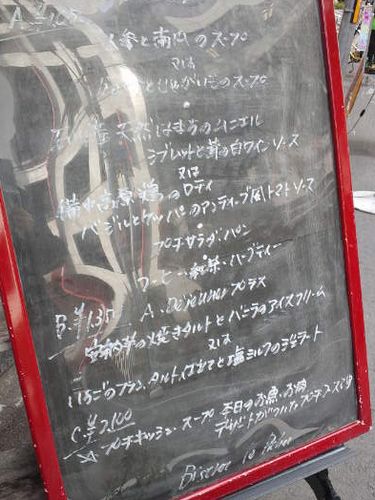 A ¥1,05
人参と南瓜のスープ
又は
とじゃがいものスープ
天然はまちのムニエル
シブレットと茸の白ワインソース
又は
備中高原鶏のロティ
バジルとケッパーのアンティーブ風トマトソース
プチサラダ・パン
コーヒー・紅茶・ハーブティー
B ¥1,35
A・Dejeunerプラス
安納芋の焼きタルトとバニラのアイスクリーム
又は
いちごのブランタルトと塩ミルクのジェラート
C ¥2,100
プチキッシュ・スープ・本日のお魚、お肉
デザートがついたプチコースです